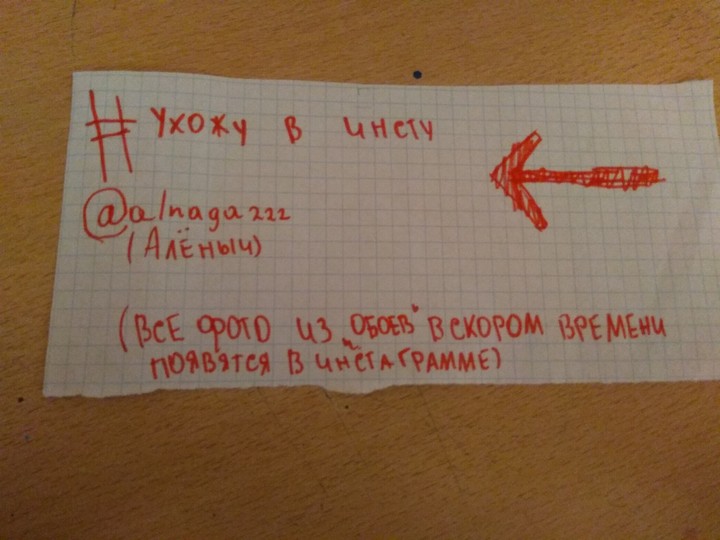 # ухожу в инсту
@alnaga222
(Алёныч)
(ВСЕ ФОТО ИЗ „ОБОЕВ" В СКОРОМ ВРЕМЕНИ
ПОЯВЯТСЯ В ИНСТАГРАММЕ)